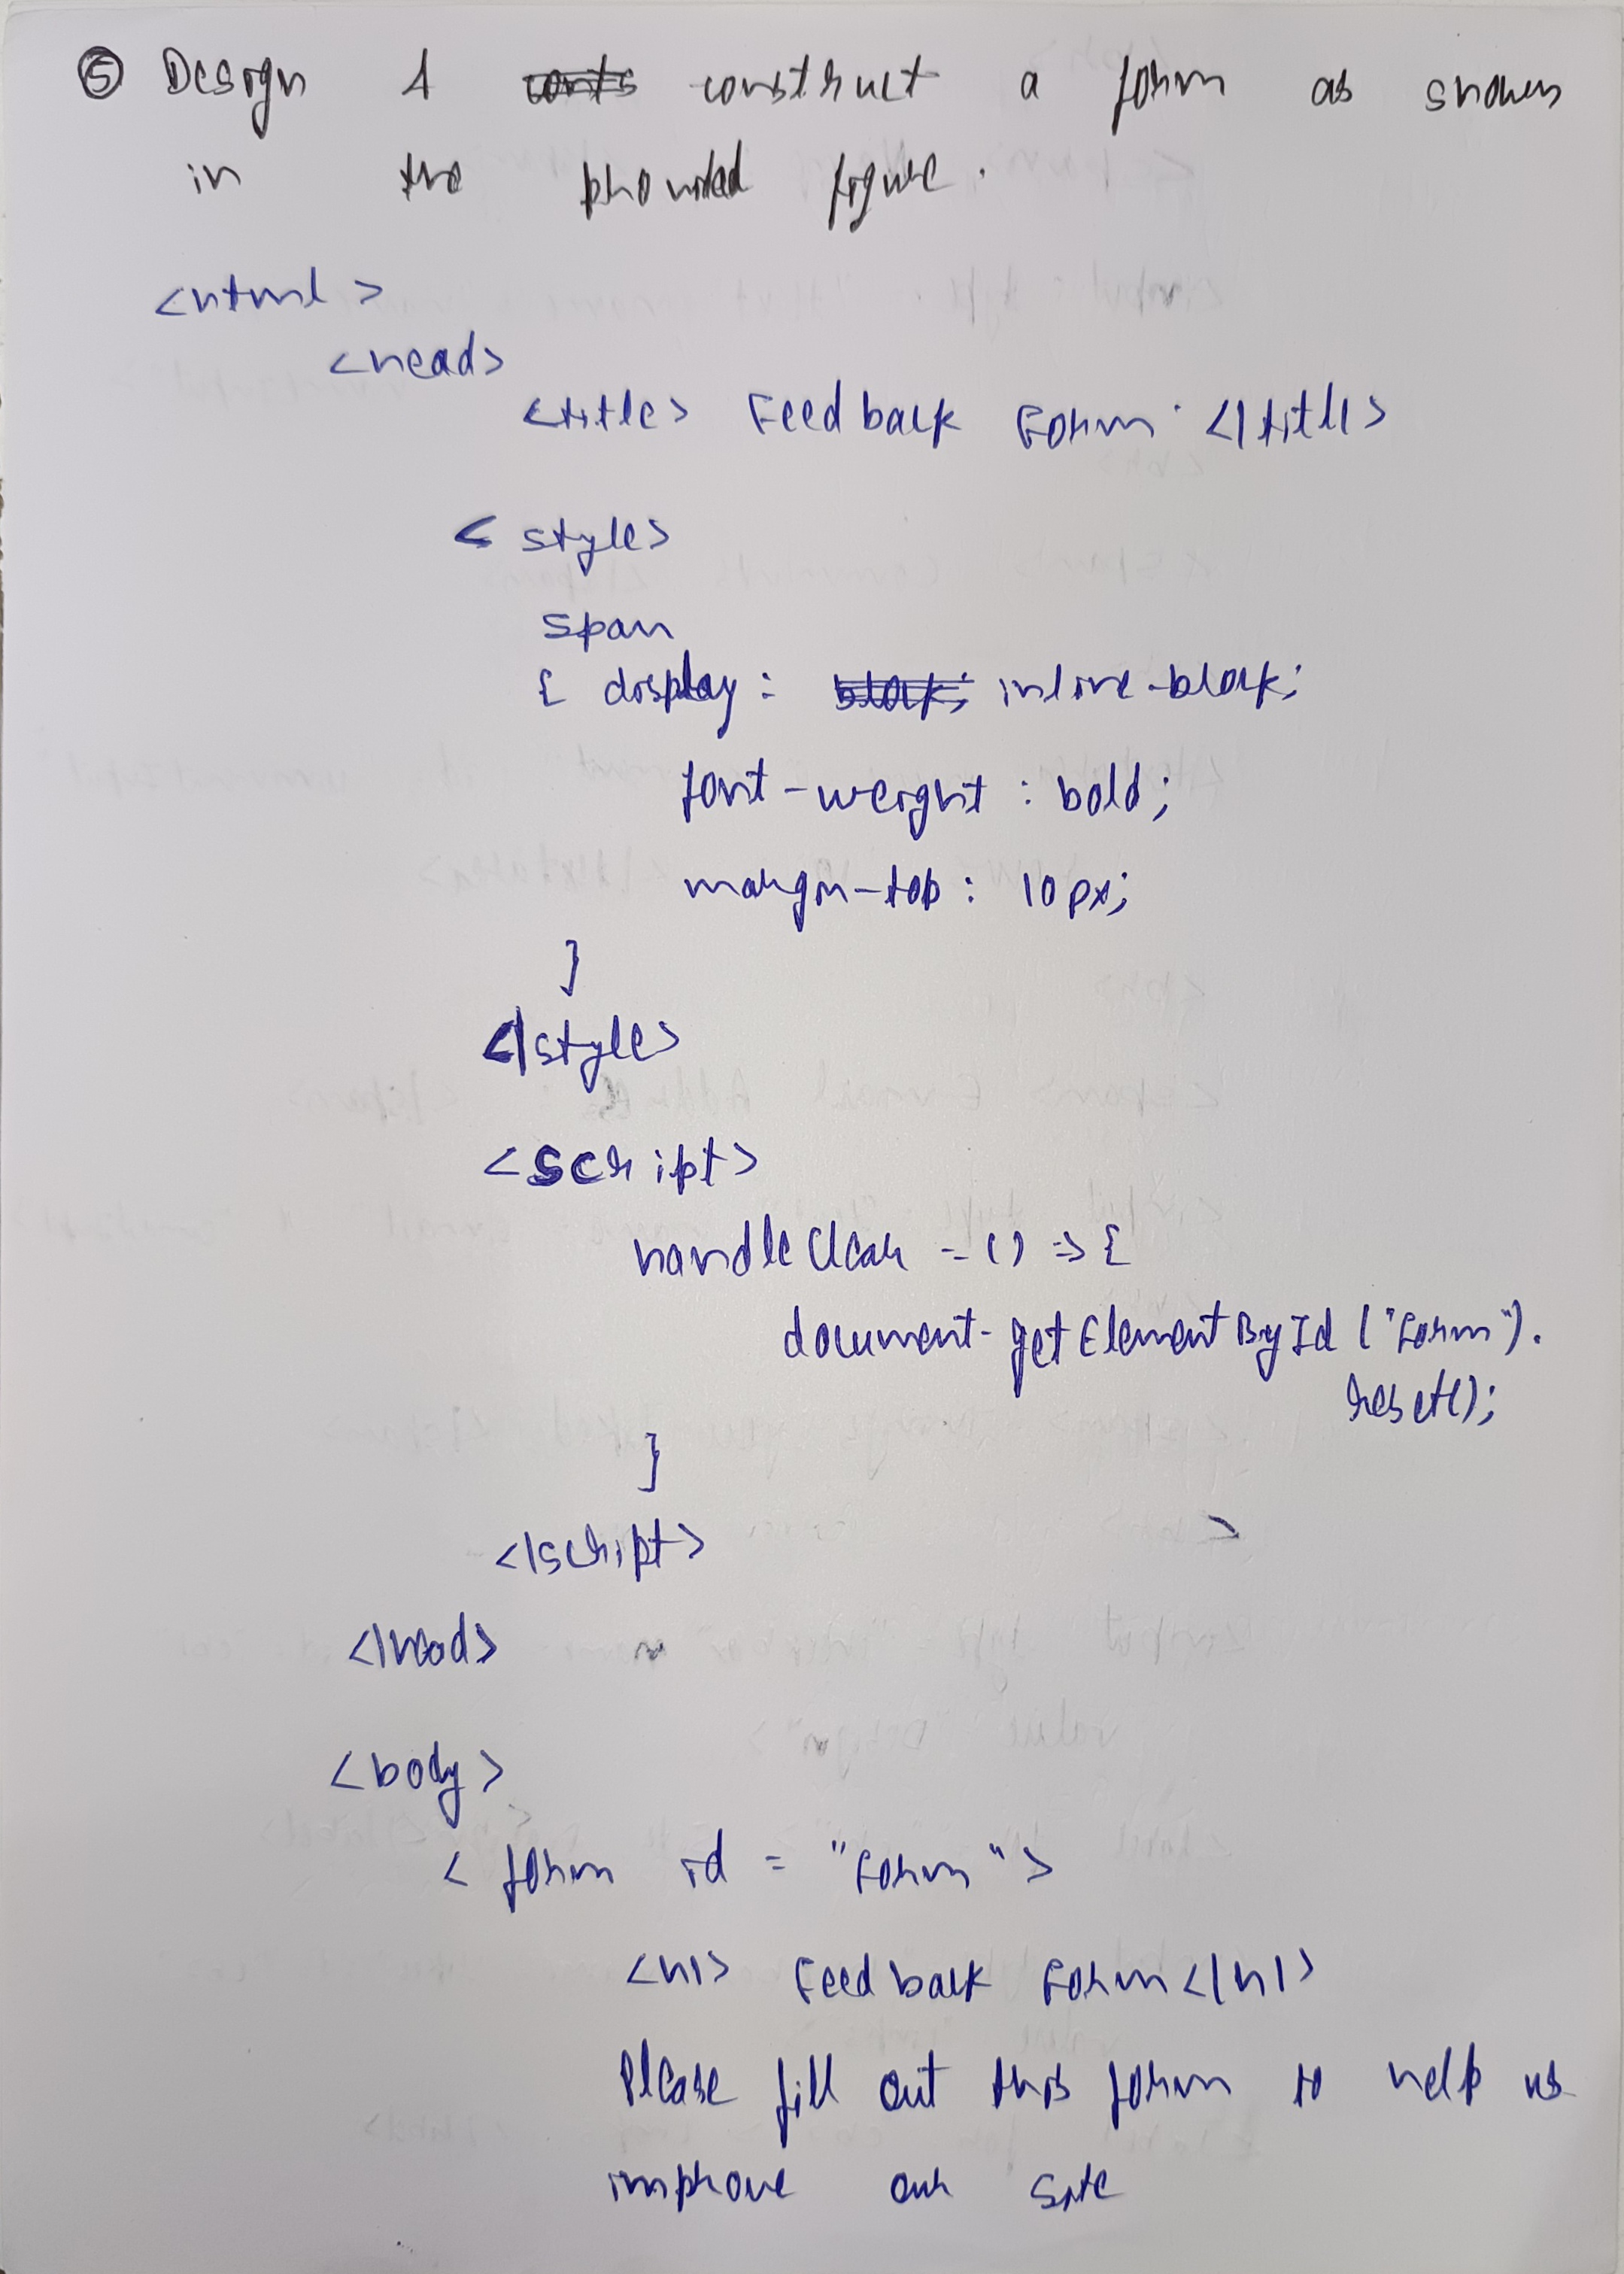 ⑤ Design & construct a form as shown
in the provided figure.
<html>
<head>
<title> Feedback Form </title>
<style>
span
{ display: inline-block;
font-weight : bold;
margin-top : 10px;
}
</style>
<script>
handleClear = () => {
document.getElementById ("Form").
reset();
}
</script>
</head>
<body>
< form id = "Form">
<h1> Feedback Form </h1>
Please fill out this form to help us
improve our site